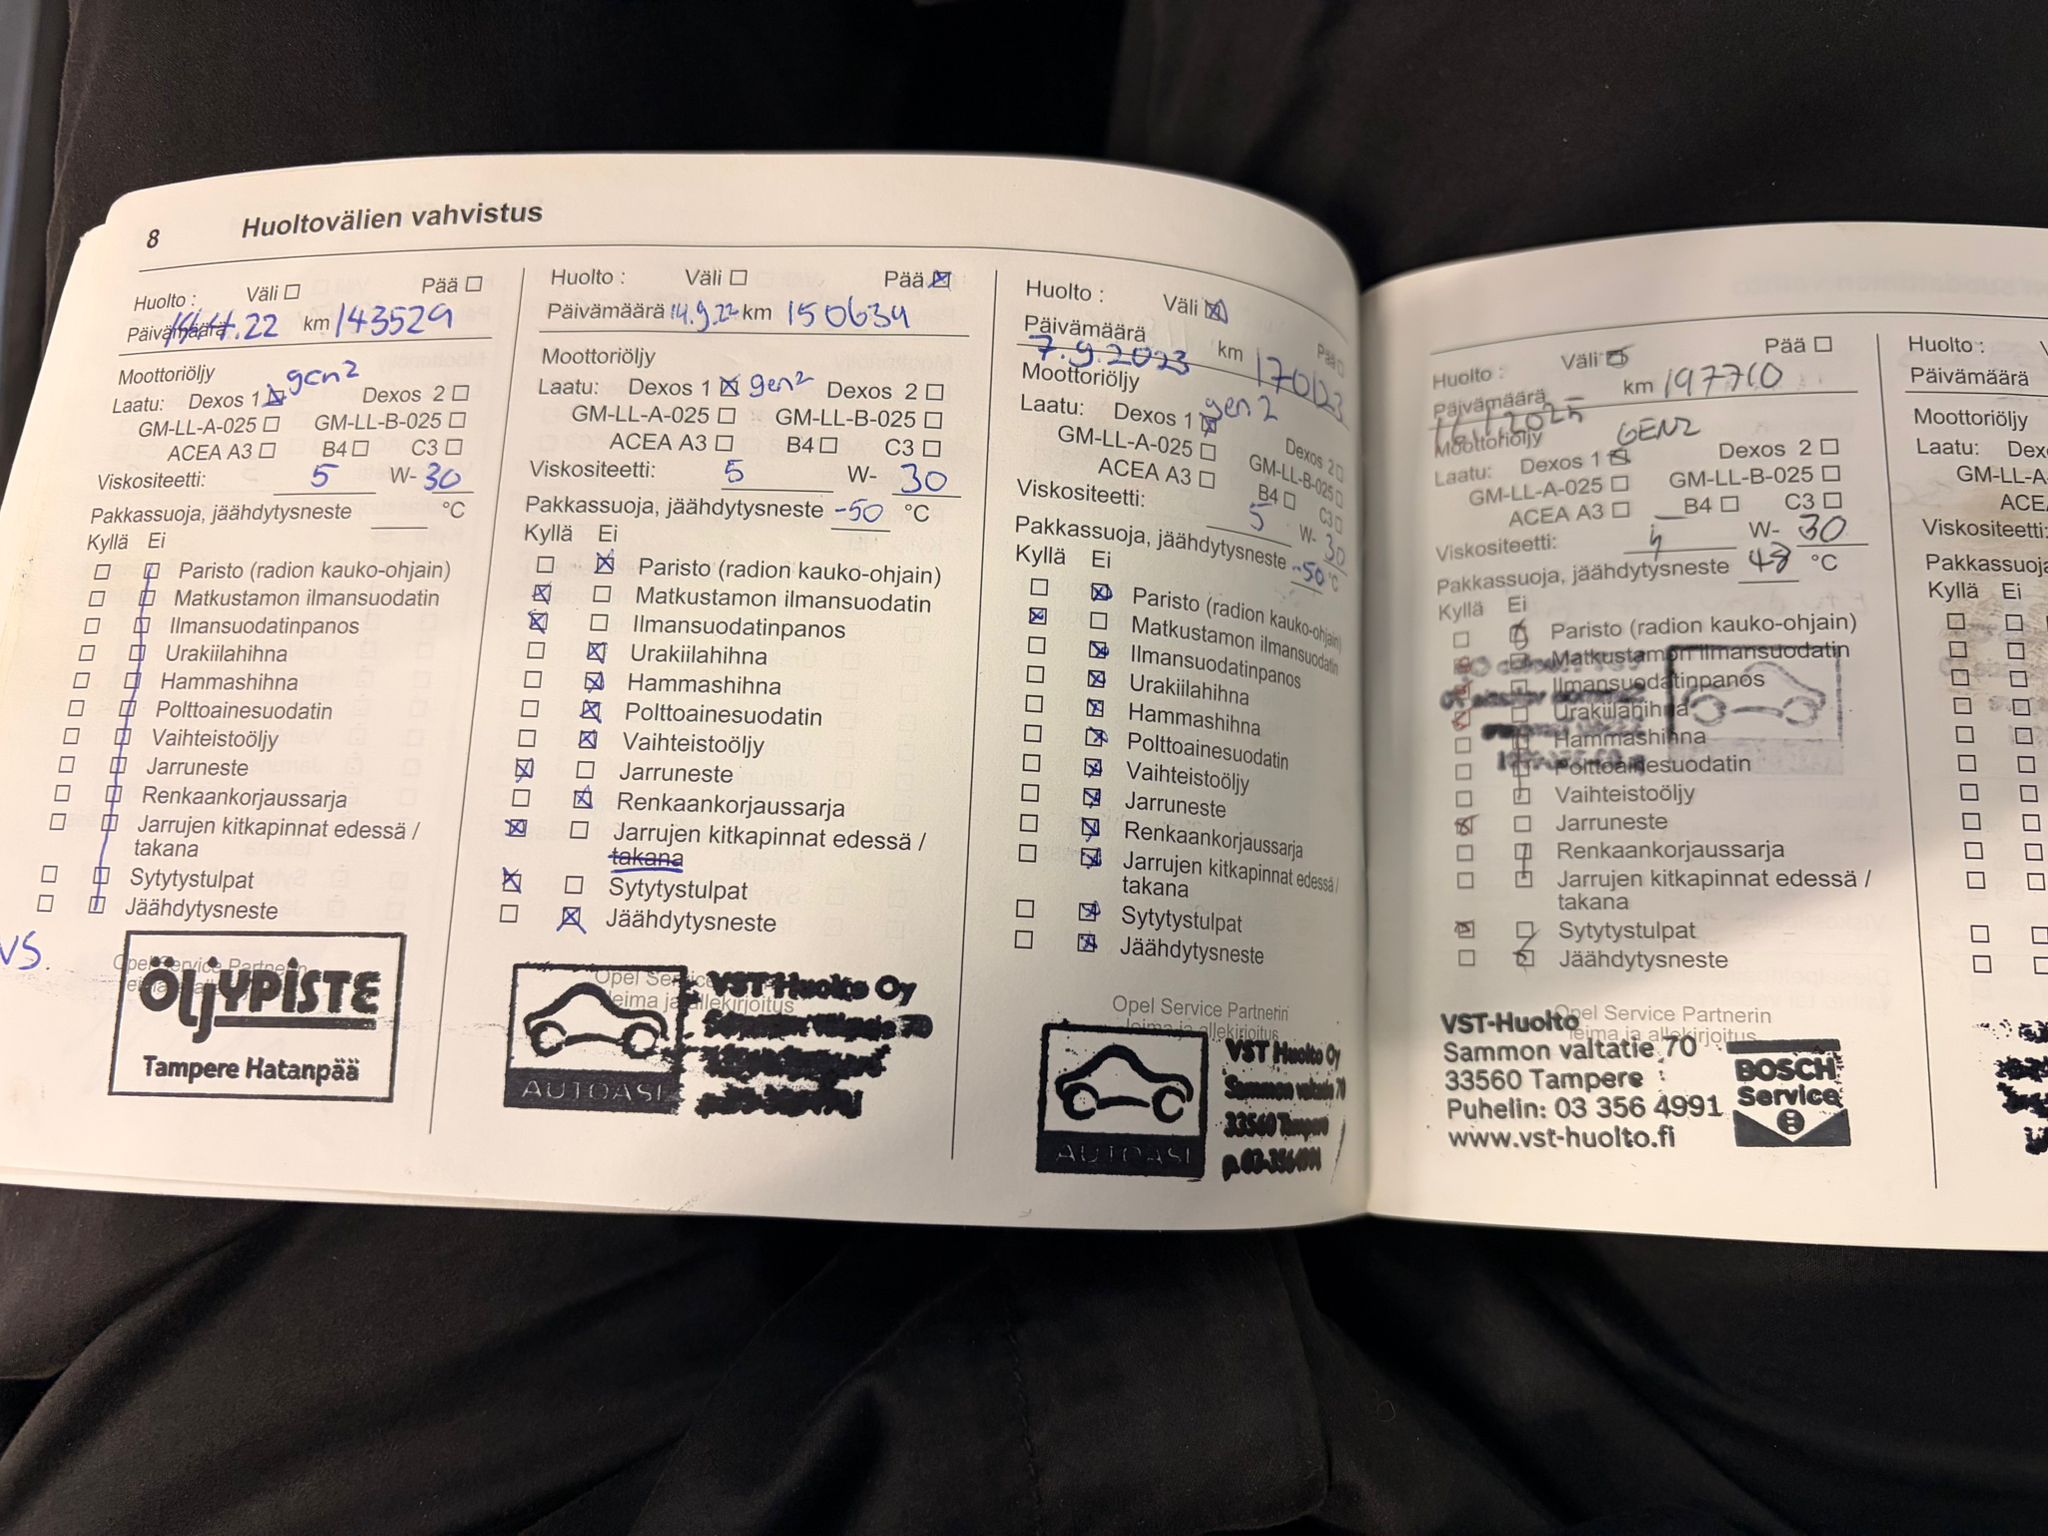 8 Huoltovälien vahvistus
Huolto : Väli Pää
Päivämäärä .22 km 143529
Moottoriöljy
gen2
Laatu: Dexos 1 Dexos 2
GM-LL-A-025 GM-LL-B-025
ACEA A3 B4 C3
Viskositeetti: 5 W- 30
Pakkassuoja, jäähdytysneste °C
Kyllä Ei
Paristo (radion kauko-ohjain)
Matkustamon ilmansuodatin
Ilmansuodatinpanos
Urakiilahihna
Hammashihna
Polttoainesuodatin
Vaihteistoöljy
Jarruneste
Renkaankorjaussarja
Jarrujen kitkapinnat edessä /
takana
Sytytystulpat
Jäähdytysneste
VS.
Opel Service Partnerin
ÖljYPISTE
Tampere Hatanpää
Huolto : Väli Pää
Päivämäärä 14.9.22 km 150634
Moottoriöljy
Laatu: Dexos 1 gen2 Dexos 2
GM-LL-A-025 GM-LL-B-025
ACEA A3 B4 C3
Viskositeetti: 5 W- 30
Pakkassuoja, jäähdytysneste -50 °C
Kyllä Ei
Paristo (radion kauko-ohjain)
Matkustamon ilmansuodatin
Ilmansuodatinpanos
Urakiilahihna
Hammashihna
Polttoainesuodatin
Vaihteistoöljy
Jarruneste
Renkaankorjaussarja
Jarrujen kitkapinnat edessä /
takana
Sytytystulpat
Jäähdytysneste
leima ja allekirjoitus
VST Huolto Oy
70
AUTOASI
Huolto : Väli Pää
Päivämäärä km 170123
7.9.2023
Moottoriöljy
gen2
Laatu: Dexos 1 Dexos 2
GM-LL-A-025 GM-LL-B-025
ACEA A3 B4 C3
Viskositeetti: 5 W- 30
Pakkassuoja, jäähdytysneste -50 °C
Kyllä Ei
Paristo (radion kauko-ohjain)
Matkustamon ilmansuodatin
Ilmansuodatinpanos
Urakiilahihna
Hammashihna
Polttoainesuodatin
Vaihteistoöljy
Jarruneste
Renkaankorjaussarja
Jarrujen kitkapinnat edessä /
takana
Sytytystulpat
Jäähdytysneste
Opel Service Partnerin
leima ja allekirjoitus
VST Huolto Oy
Sammon valtatie 70
33540 Tampere
p. 03-3564991
AUTOASI
Huolto : Väli Pää
Päivämäärä km 197710
Moottoriöljy
GEN2
Laatu: Dexos 1 Dexos 2
GM-LL-A-025 GM-LL-B-025
ACEA A3 B4 C3
Viskositeetti: 5 W- 30
Pakkassuoja, jäähdytysneste 48 °C
Kyllä Ei
Paristo (radion kauko-ohjain)
Matkustamon ilmansuodatin
Ilmansuodatinpanos
Urakiilahihna
Hammashihna
Polttoainesuodatin
Vaihteistoöljy
Jarruneste
Renkaankorjaussarja
Jarrujen kitkapinnat edessä /
takana
Sytytystulpat
Jäähdytysneste
Opel Service Partnerin
leima ja allekirjoitus
VST-Huolto
Sammon valtatie 70
33560 Tampere
Puhelin: 03 356 4991
www.vst-huolto.fi
BOSCH
Service
Huolto :
Päivämäärä
Moottoriöljy
Laatu:
GM-LL-A-
Viskositeetti:
Kyllä Ei